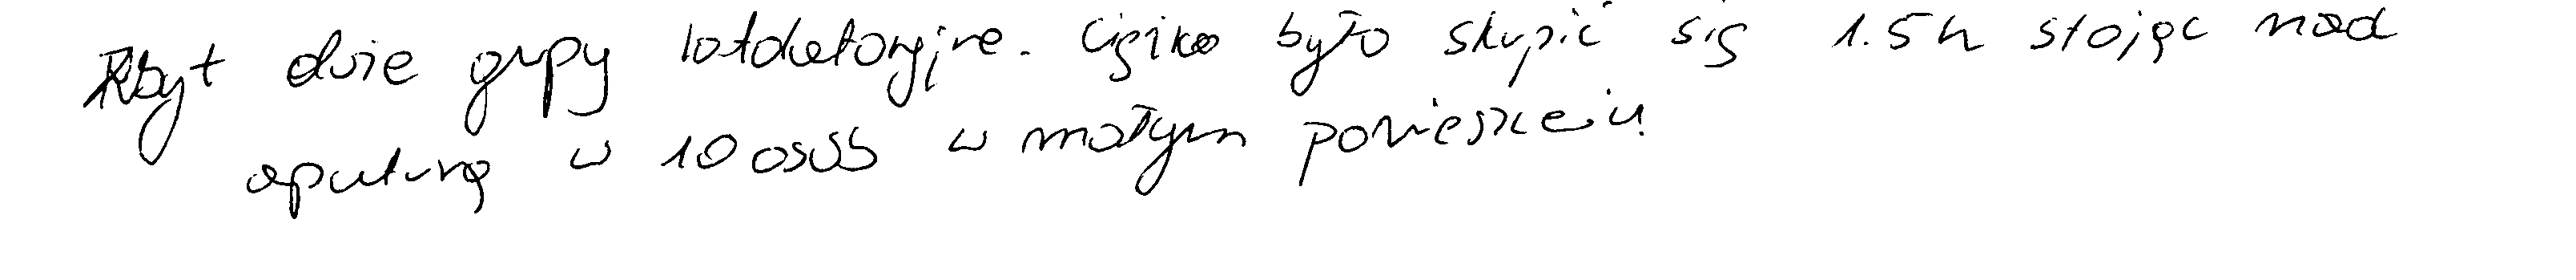 Zbyt duże grupy laboratoryjne. Ciężko było skupić się 1.5h stojąc nad
aparaturą w 10 osób w małym pomieszczeniu